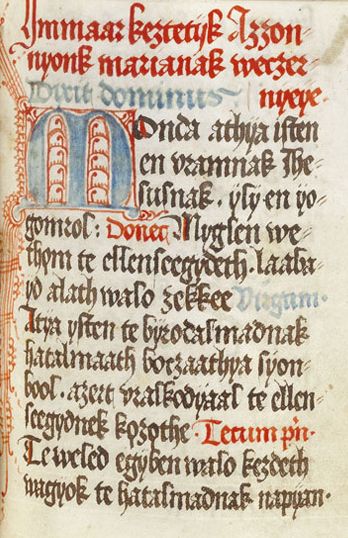 Immaar keztetijk Azzon-
nyonk marianak weczer-
Dixit dominus nyeye·
Monda athya isten
en vramnak Ihe-
susnak · yly en yo-
gomrol : Donec Myglen we-
them te ellenseegydeth · laaba-
yo alath walo zekkee Virgam ·
Atya ysten te byrodalmadnak
hatalmaath boczaathya syon-
bool · azert vraskodyaal te ellen-
seegydnek kozothe · Tecum prin·
Te weled egyben walo kezdeth
wagyok te hatalmadnak napyan ·